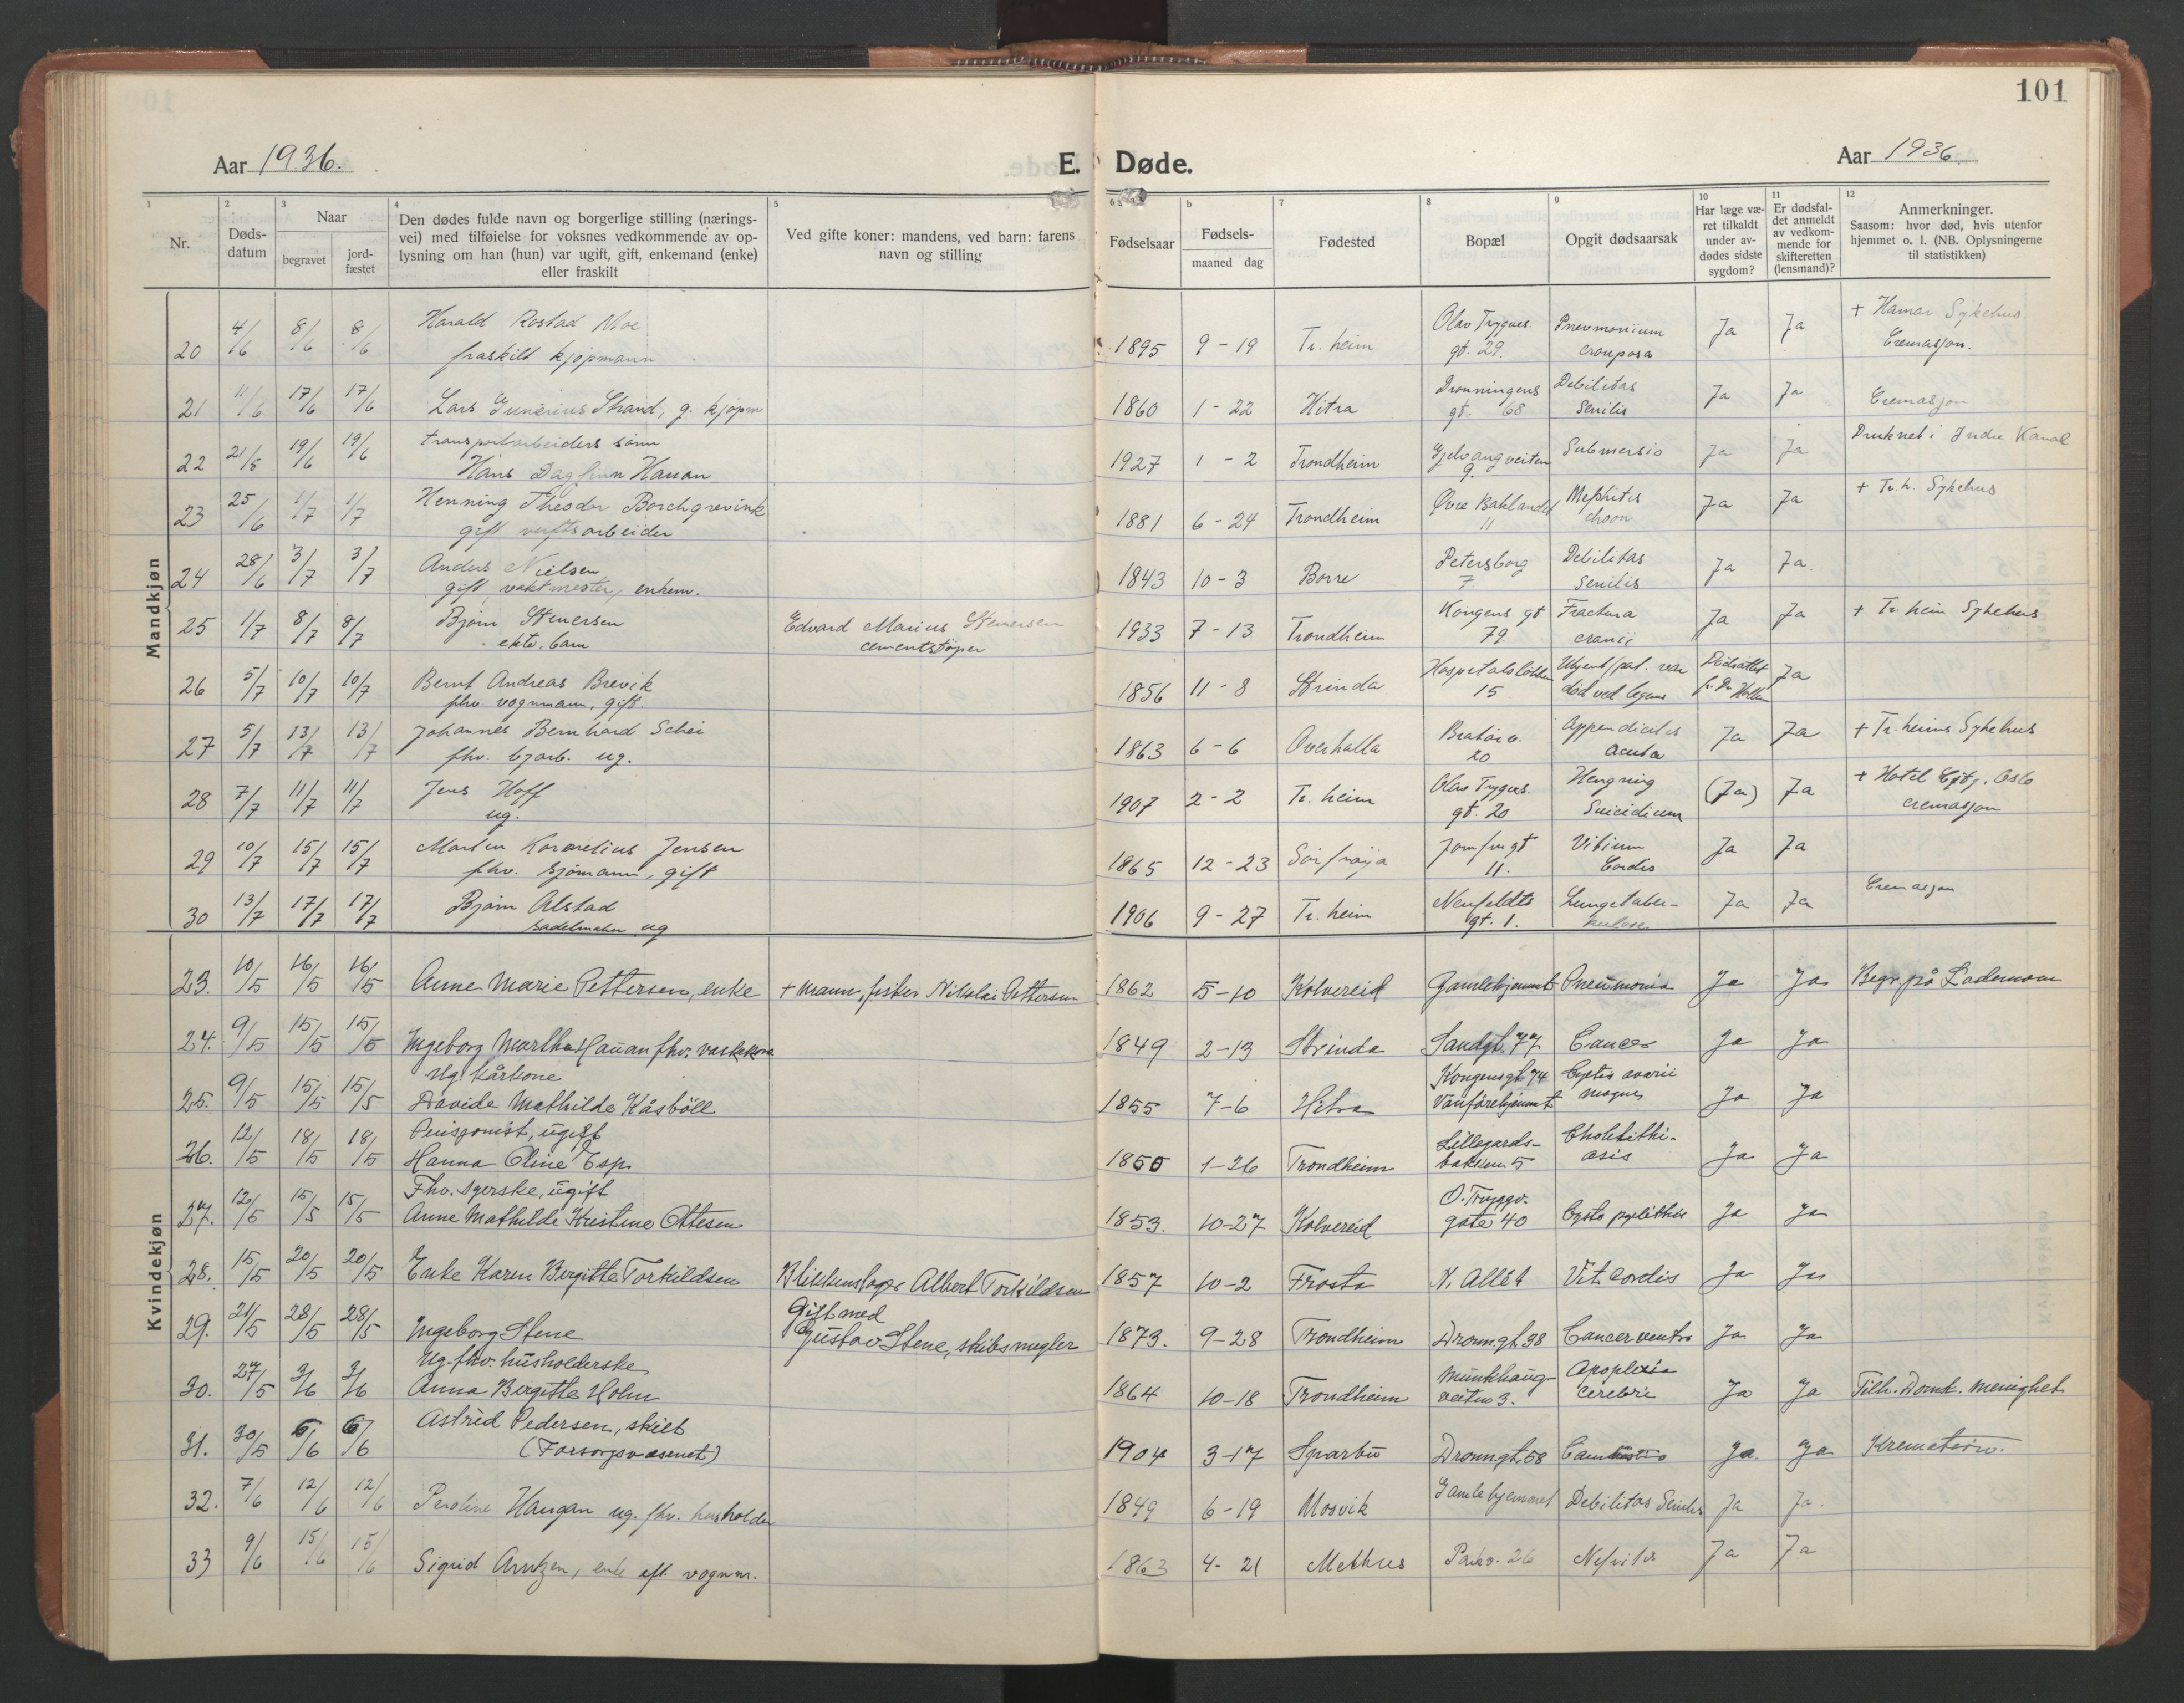 101
Aar 1936.
E. Døde.
Aar 1936.
1 2 3 4 5 6 a b 7 8 9 10 11 12
Nr.
Døds-
datum
Naar
begravet
jord-
fæstet
Den dødes fulde navn og borgerlige stilling (nærings-
vei) med tilføielse for voksnes vedkommende av op-
lysning om han (hun) var ugift, gift, enkemand (enke)
eller fraskilt
Ved gifte koner: mandens, ved barn: farens
navn og stilling
Fødselsaar
Fødsels-
maaned dag
Fødested
Bopæl
Opgit dødsaarsak
Har læge væ-
ret tilkaldt
under av-
dødes sidste
sygdom?
Er dødsfal-
det anmeldt
av vedkom-
mende for
skifteretten
(lensmand)?
Anmerkninger.
Saasom: hvor død, hvis utenfor
hjemmet o. l. (NB. Oplysningerne
til statistikken)
Mandkjøn
20 4/6 8/6 8/6 Harald Rostad Moe 1895 9-19 Tr. heim Olav Trygves. Pnevmonium Ja Ja + Hamar Sykehus
fraskilt kjøpmann gt. 29. crouposa Cremasjon.
21 11/6 17/6 17/6 Lars Gunerius Strand, g. kjøpm 1860 1-22 Hitra Dronningens Debilitas Ja Ja Cremasjon
gt. 68 Senilis
22 21/5 19/6 19/6 transportarbeiders sønn 1927 1-2 Trondheim Gjelvangveiten Submersio Ja Ja Druknet i Indre Kanal
Hans Dagfinn Hanan 9.
23 25/6 1/7 1/7 Henning Theodor Borchgrevink 1881 6-24 Trondheim Øvre Baklandet Ja Ja + Tr.h. Sykehus
gift verftsarbeider 11
24 28/6 3/7 3/7 Anders Nielsen 1843 10-3 Borre Petersborg Debilitas Ja Ja.
gift vaktmester, enkem. 7. Senilis
25 1/7 8/7 8/7 Bjørn Stenersen Edvard Marius Stenersen 1933 7-13 Trondheim Kongens gt Fractura Ja Ja + Tr. heim Sykehus
ekte. barn cementstøper 79 cranii
26 5/7 10/7 10/7 Bernt Andreas Brevik 1856 11-8 Strinda Hospitalsløkken Ukjent/pat. var Ja
fhv. vognmann, gift. 15 død ved legens
27 5/7 13/7 13/7 Johannes Bernhard Schei 1863 6-6 Overhalla Bratørv. Appendicitis Ja Ja + Tr. heims Sykehus
fhv. bjarb. ug. 20 acuta
28 7/7 11/7 11/7 Jens Hoff 1907 2-2 Tr. heim Olav Trygves. Hengning (Ja) Ja + Hotel Oslo
ug. gt. 20 Suicidium cremasjon
29 10/7 15/7 15/7 Morten Kornelius Jensen 1865 12-23 Sørfrøya Jomfrugt Vitium Ja Ja
fhv. sjømann, gift 11. Cordis
30 13/7 17/7 17/7 Bjørn Alstad 1906 9-27 Tr. heim Neufeldts Lungetuber- Ja Ja Cremasjon
sadelmaker ug gt. 1. kulose
Kvindekjøn
23. 10/5 16/5 16/5 Anne Marie Pettersen, enke + mann, fisker Nikolai Pettersen 1862 5-10 Kolvereid Gamlehjemmet Pneumonia Ja Ja Begr. på Lademoen
24. 9/5 15/5 15/5 Ingeborg Martha Hanan fhv. vaskekone 1849 2-13 Strinda Sandgt. 77 Cancer Ja Ja
25. 9/5 15/5 15/5 Ug. kårkone 1855 7-6 Hitra Kongensgt. 74 Cystis ovarii Ja Ja
Davide Mathilde Kåsbøll Vanførehjemmet magna
26. 12/5 18/5 18/5 Pensjonist, ugift 1850 1-26 Trondheim Lillegårds- Cholelithi- Ja Ja
Hanna Oline Esp. bakken 5 asis
27. 12/5 15/5 15/5 Fhv. syerske, ugift 1853. 10-27 Kolvereid O. Tryggv. Ja Ja
Anne Mathilde Kristine Ottesen gate 40 Cysto pyelithis
28. 15/5 20/5 20/5 Enke Karen Birgitte Torkildsen Blikkenslager Albert Torkildsen 1857 10-2 Frosta K. Allét Vit. cordis Ja Ja
29. 21/5 28/5 28/5 Ingeborg Stene Gift med 1873. 9-28 Trondheim Dronn.gt. 38 Cancer ventr. Ja Ja
Gustav Stene, skibsmegler
30. 27/5 3/6 3/6 Ug. fhv. husholderske 1864 10-18 Trondheim Munkhaug- Apoplexia Ja Ja Tilh. Domk. menighet
Anna Birgitte Holm veiten 3. cerebri
31. 30/5 6/6 6/6 Astrid Pedersen, skilt 1904 3-17 Sparbu Dronn.gt. 58 Ja. Ja Kremation.
(Forsorgsvæsenet)
32. 7/6 12/6 12/6 Peroline Haugan ug. fhv. husholder 1849 6-19 Mosvik Gamlehjemmet Debilitas Senilis Ja Ja.
33 9/6 15/6 15/6 Sigrid Arntzen, enke eft. vognm. 1863 4-21 Melhus Parkv. 26 Nefritis Ja Ja